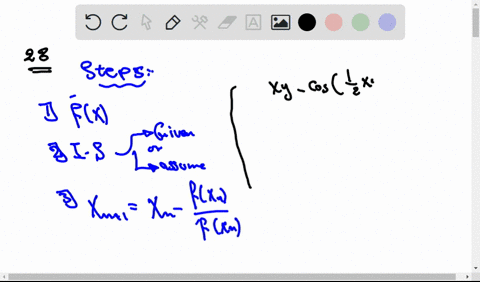 28
Steps:-
1) f(x)
2) I.S Given
or
assume
3) Xn+1 = Xn - f(Xn)/f(Xn)
xy - cos(1/2 x
A